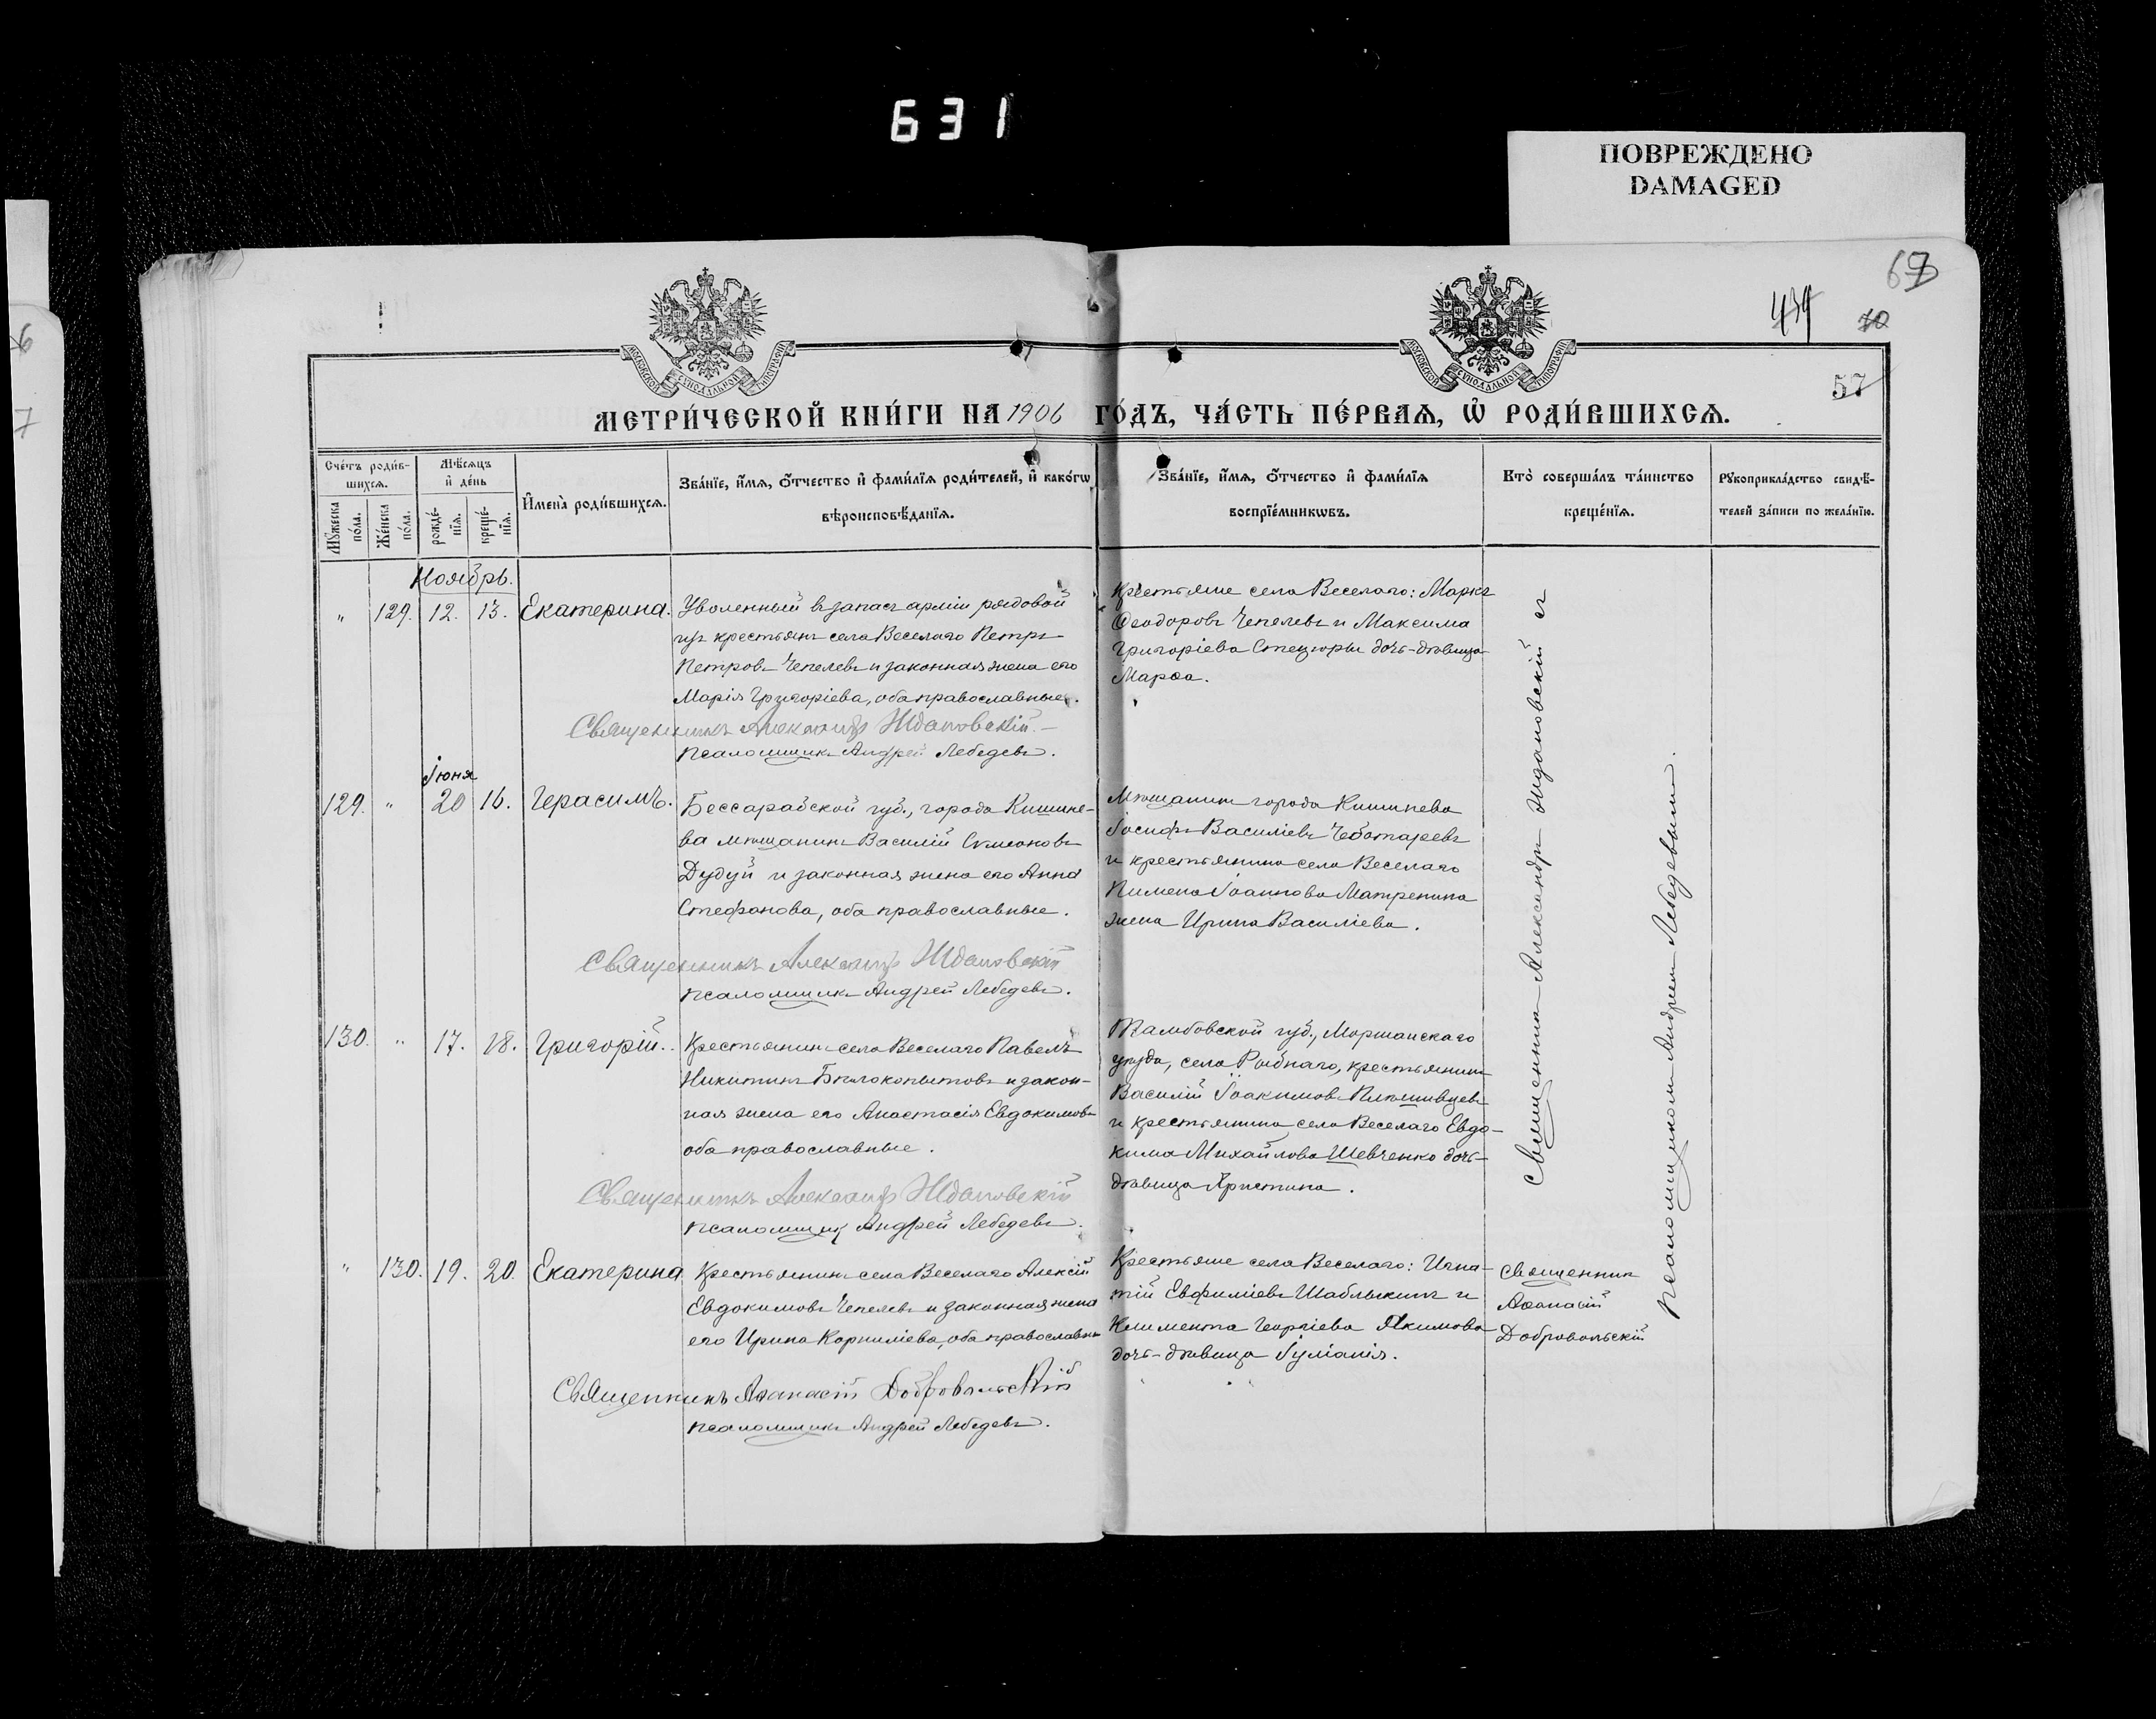 631
ПОВРЕЖДЕНО
DAMAGED
67
439
70
57
МОСКОВСКОЙ СѴНОДАЛЬНОЙ ТИПОГРАФІИ
МОСКОВСКОЙ СѴНОДАЛЬНОЙ ТИПОГРАФІИ
МЕТРИ́ЧЕСКОЙ КНИ́ГИ НА 1906 ГО́ДЪ, ЧА́СТЬ ПЕ́РВАЯ, Ѡ҆ РОДИ́ВШИХСЯ.
Сче́тъ роди́в-
шихся.
Мꙋ́жеска по́ла.
Же́нска по́ла.
Мѣ́сяцъ и҆ де́нь
рожде́-
нїя.
креще́-
нїя.
И҆мена̀ роди́вшихся.
Зва́нїе, и҆́мя, ѻ҆́тчество и҆ фами́лїя роди́телей, и҆ како́гѡ
вѣроисповѣ́данїя.
Зва́нїе, и҆́мя, ѻ҆́тчество и҆ фами́лїя
воспрїе́мникѡвъ.
Кто̀ соверша́лъ та́инство
креще́нїя.
Рꙋкоприкла́дство свидѣ́-
телей за́писи по жела́нїю.
Ноябрь.
" 129. 12. 13. Екатерина.
Уволенный въ запасъ арміи рядовой
изъ крестьянъ села Веселаго Петръ
Петровъ Чепелевъ и законная жена его
Марія Григоріева, оба православные.
Священникъ Александръ Ждановскій
Псаломщикъ Андрей Лебедевъ.
Крестьяне села Веселаго: Маркъ
Ѳеодоровъ Чепелевъ и Максима
Григоріева Стецюры дочь-дѣвица
Марѳа.
Іюня
129. " 20 16. Герасимъ.
Бессарабской губ., города Кишине-
ва мѣщанинъ Василій Симеоновъ
Дудуй и законная жена его Анна
Стефанова, оба православные.
Священникъ Александръ Ждановскій
Псаломщикъ Андрей Лебедевъ.
Мѣщанинъ города Кишинева
Іосифъ Василіевъ Чеботаревъ
и крестьянина села Веселаго
Пимена Іоаннова Матренина
жена Ирина Василіева.
130. " 17. 18. Григорій.
Крестьянинъ села Веселаго Павелъ
Никитинъ Бѣлокопытовъ и закон-
ная жена его Анастасія Евдокимова
оба православные.
Священникъ Александръ Ждановскій
Псаломщикъ Андрей Лебедевъ.
Тамбовской губ., Моршанскаго
уѣзда, села Рыбнаго, крестьянинъ
Василій Іоакимовъ Плѣшивцевъ
и крестьянина села Веселаго Евдо-
кима Михайлова Шевченко дочь-
дѣвица Христина.
" 130. 19. 20. Екатерина
Крестьянинъ села Веселаго Алексій
Евдокимовъ Чепелевъ и законная жена
его Ирина Корниліева, оба православны
Священникъ Аѳанасій Добровольскій
Псаломщикъ Андрей Лебедевъ.
Крестьяне села Веселаго: Игна-
тій Евфиміевъ Шаблыкинъ и
Климента Георгіева Якимова
дочь-дѣвица Іуліанія.
Священникъ
Аѳанасій
Добровольскій
Священникъ Александръ Ждановскій съ
псаломщикомъ Андреемъ Лебедевымъ.